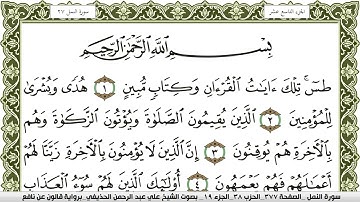 الجزء التاسع عشر
سورة النمل ٢٧
بِسْمِ اللَّهِ الرَّحْمَٰنِ الرَّحِيمِ
طسٓ تِلْكَ ءَايَٰتُ الْقُرْءَانِ وَكِتَابٍ مُّبِينٍ ١ هُدًى وَبُشْرَىٰ
لِلْمُؤْمِنِينَ ٢ الَّذِينَ يُقِيمُونَ الصَّلَوٰةَ وَيُؤْتُونَ الزَّكَوٰةَ وَهُم
بِالْأَخِرَةِ هُمْ يُوقِنُونَ ٣ إِنَّ الَّذِينَ لَا يُؤْمِنُونَ بِالْأَخِرَةِ زَيَّنَّا لَهُمْ
أَعْمَٰلَهُمْ فَهُمْ يَعْمَهُونَ ٤ أُوْلَٰٓئِكَ الَّذِينَ لَهُمْ سُوٓءُ الْعَذَابِ
سورة النمل . الصفحة ٣٧٧ الحزب ٣٨ . الجزء ١٩ . بصوت الشيخ علي عبد الرحمن الحذيفي . برواية قالون عن نافع